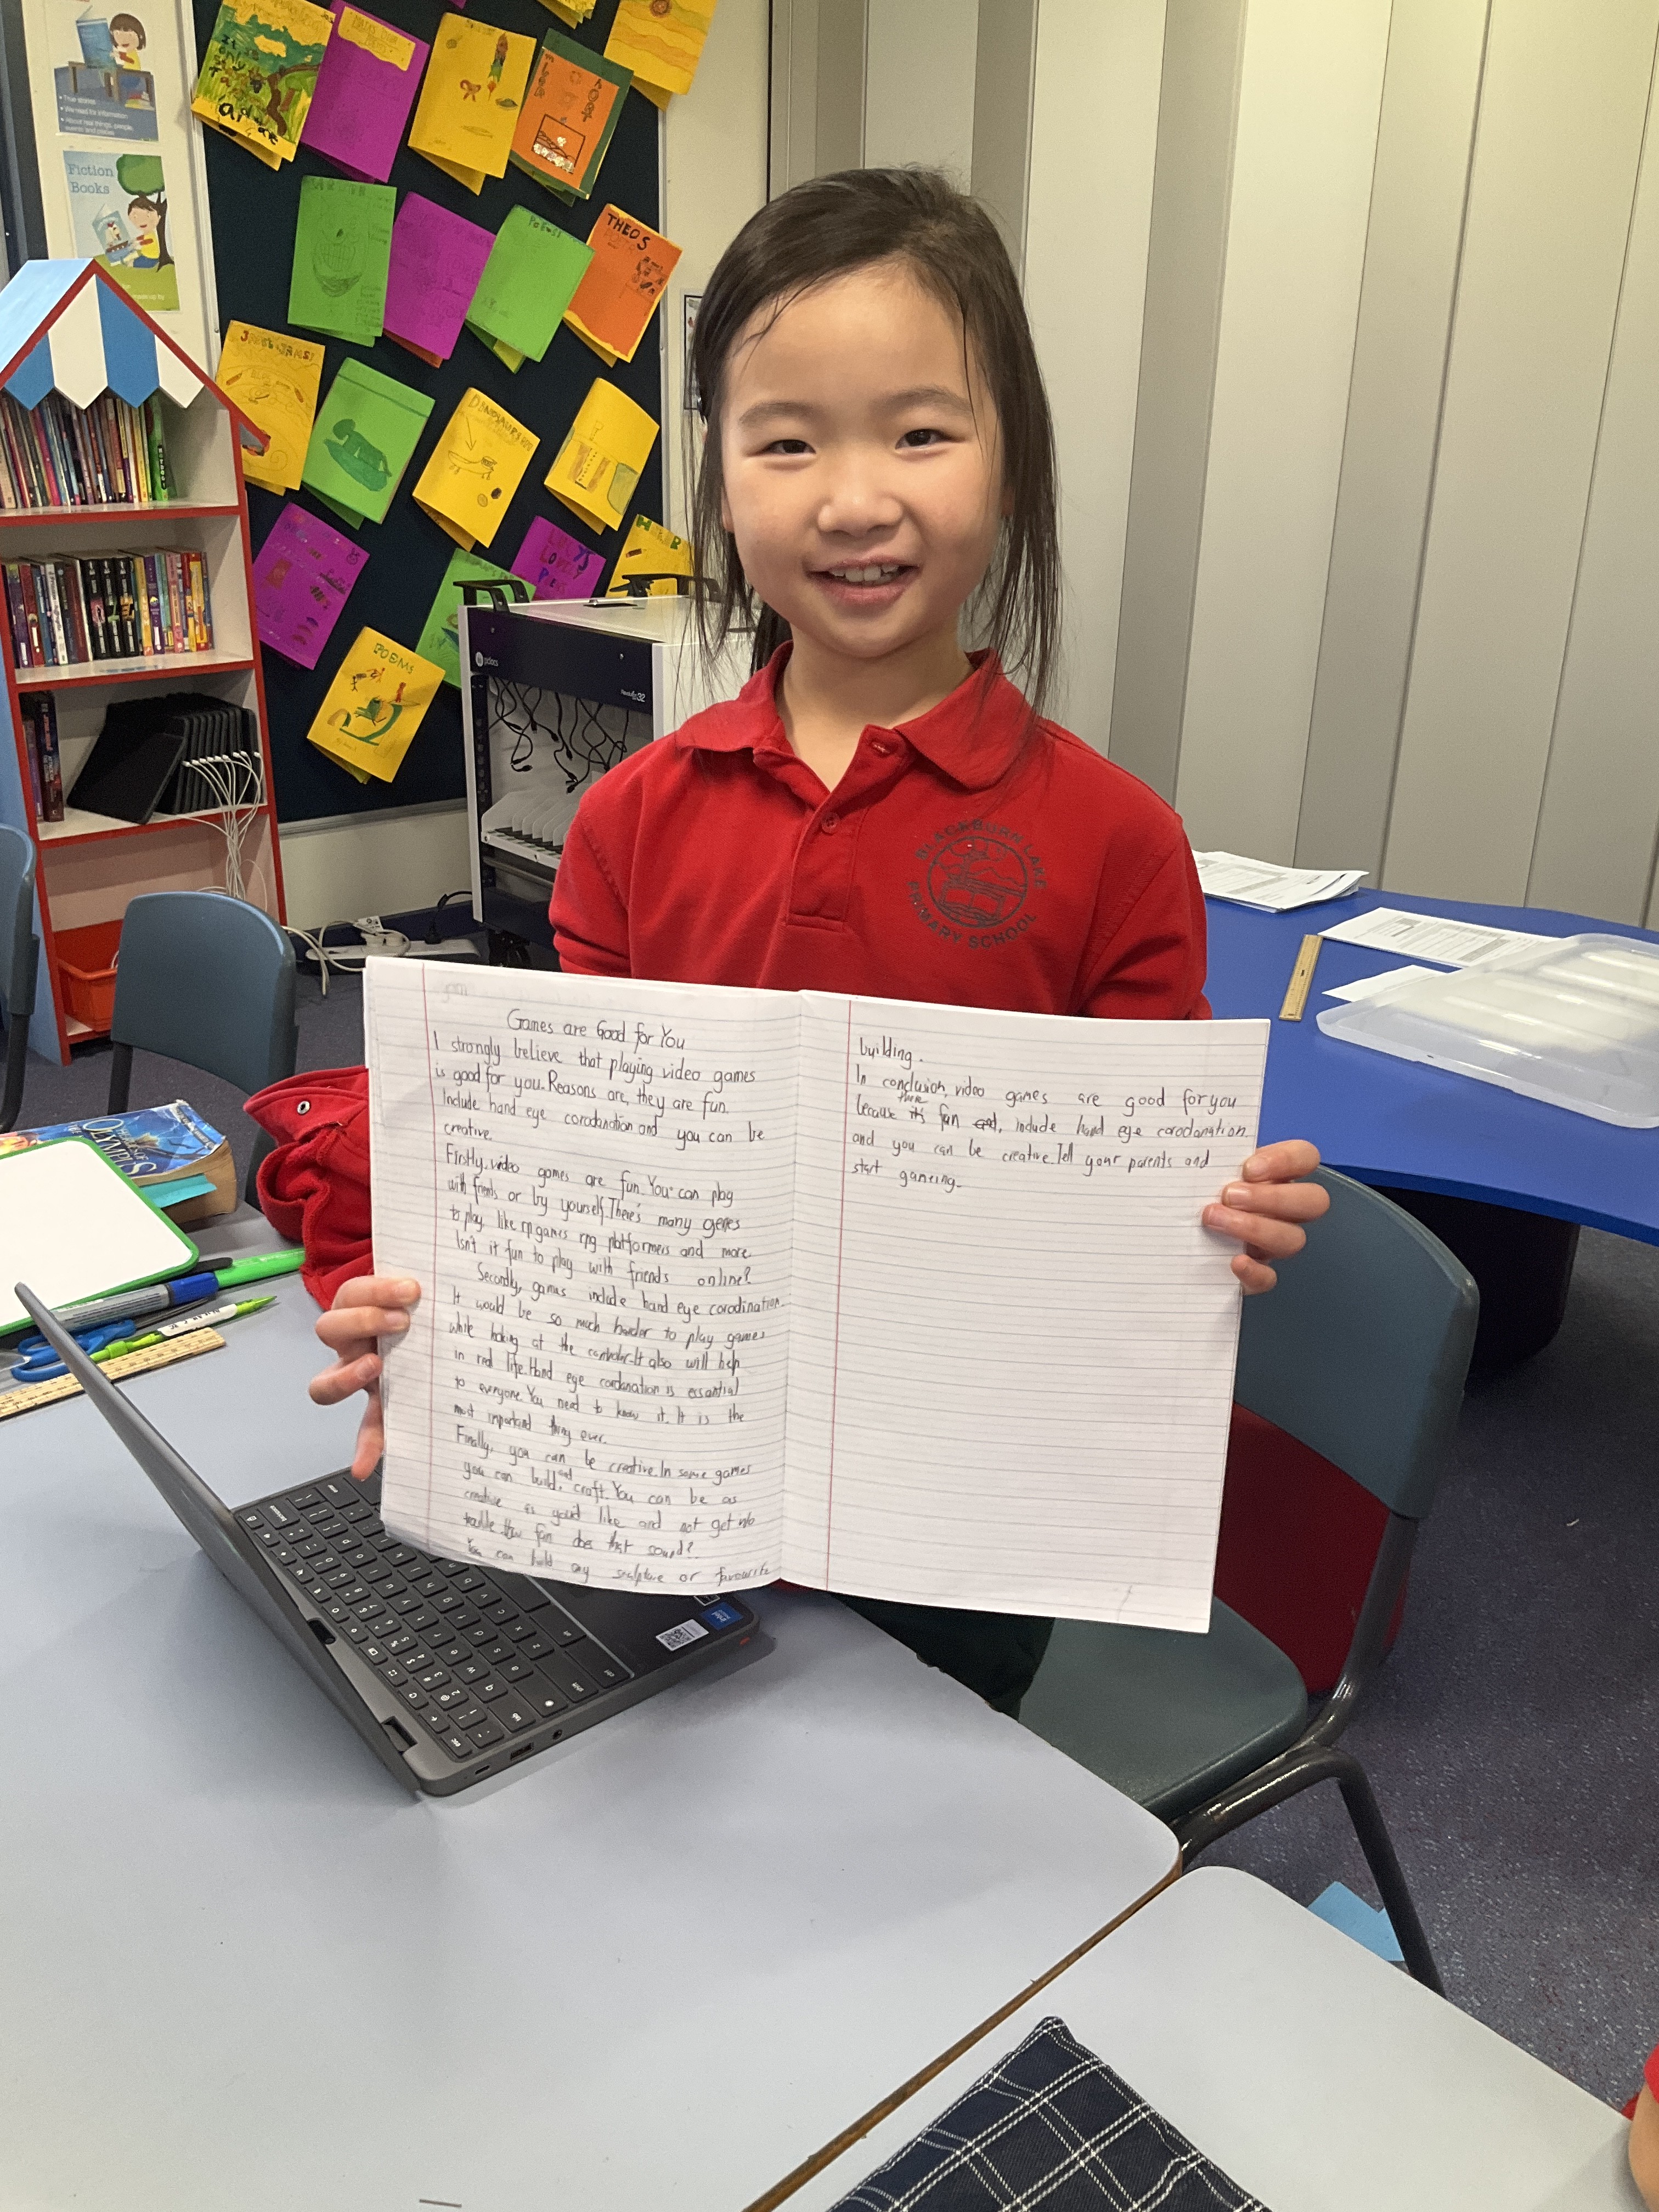 Games are Good for You
I strongly believe that playing video games
is good for you. Reasons are, they are fun.
Include hand eye corodanation and you can be
creative.
Firstly, video games are fun. You can play
with friends or by yourself. There's many genres
to play, like rpgames rpg platformers and more.
Isn't it fun to play with friends online?
Secondly, games include hand eye corodination.
It would be so much harder to play games
while looking at the controller. It also will help
in real life. Hand eye cordanation is essantial
to everyone. You need to know it. It is the
most important thing ever.
Finally, you can be creative. In some games
you can build and craft. You can be as
creative as you'd like and not get into
trouble. How fun does that sound?
You can build any sculpture or favourite
building.
In conclusion, video games are good for you
because fun, include hand eye corodanation
and you can be creative. Tell your parents and
start gameing.
BLACKBURN LAKE
PRIMARY SCHOOL
Fiction
Books
• True stories
• We read for information
• About real things, people,
events and places
THEO'S
DINOSAURS
POEMS
LUCY'S
LOVELY
OLYMPUS
intel